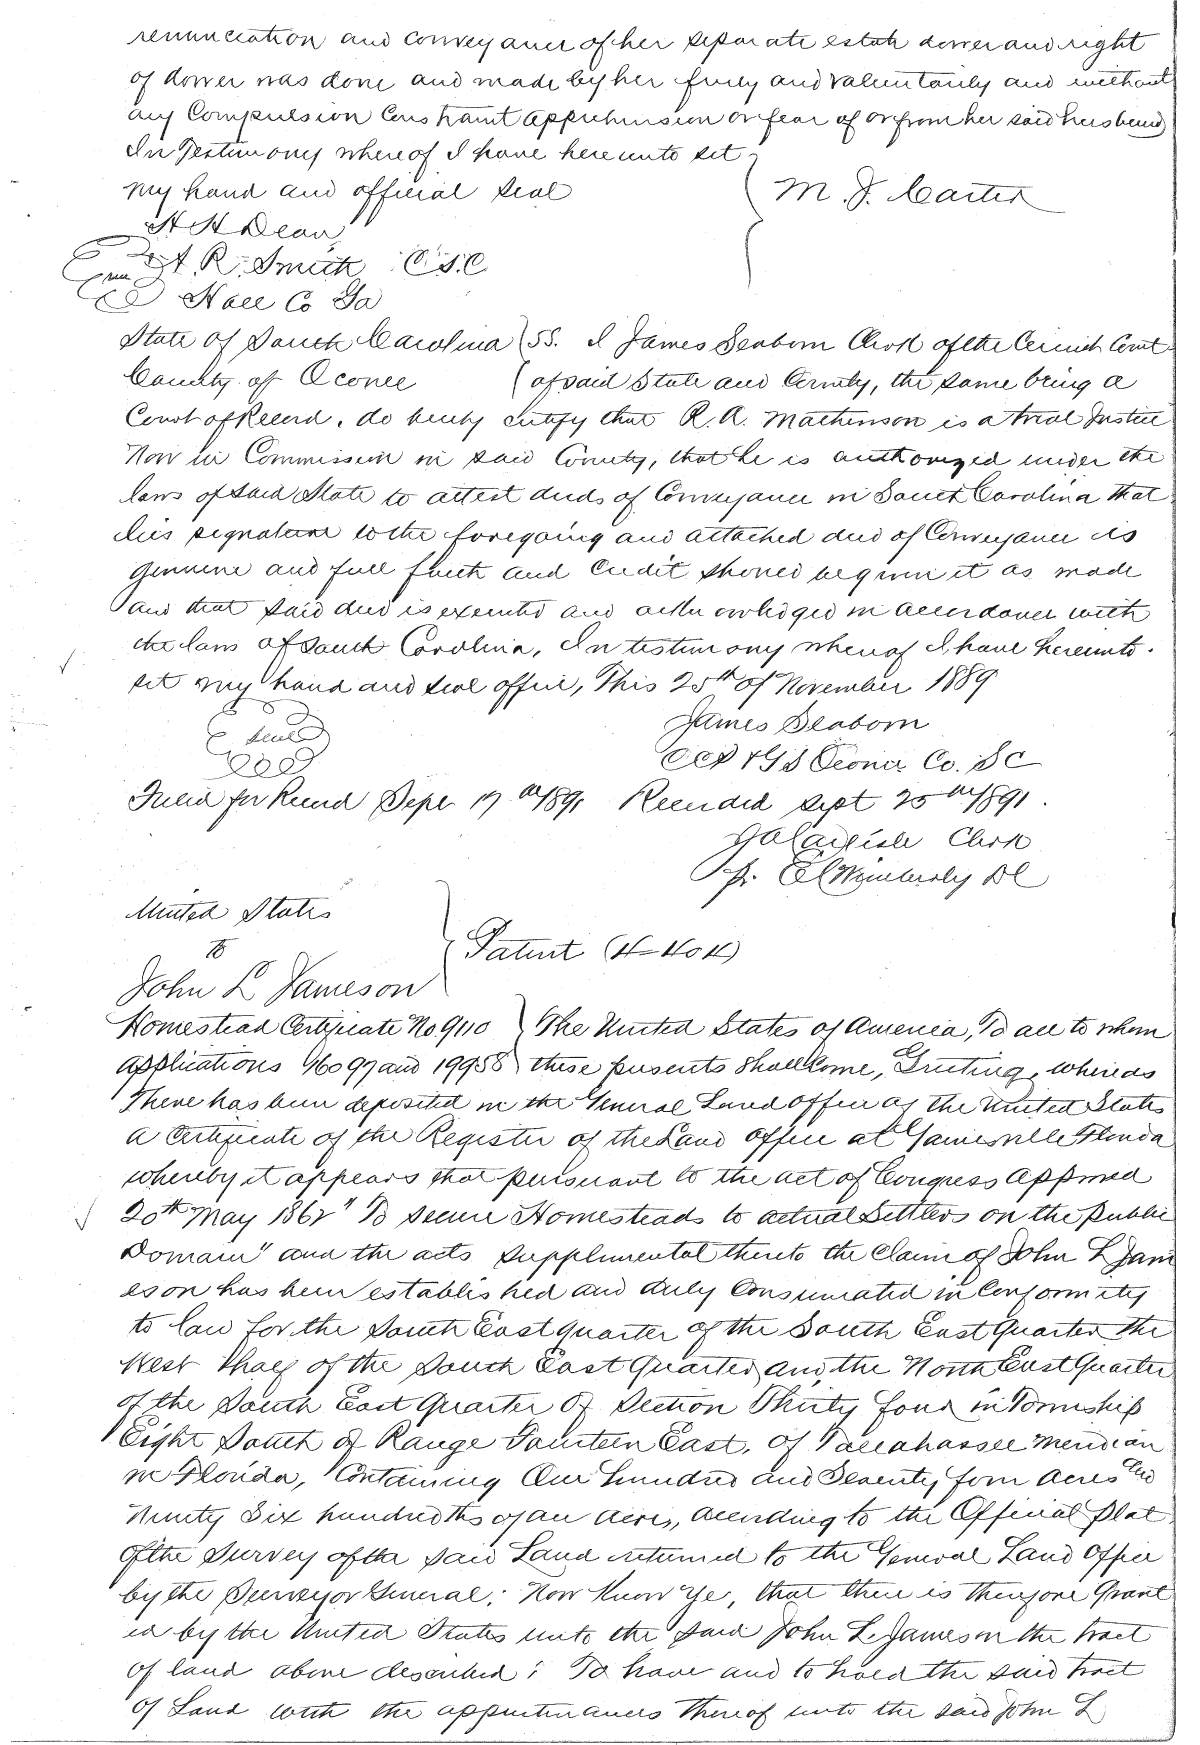 renunciation and conveyance of her separate estate dower and right
of dower was done and made by her freely and valuntarily and without
any Compulsion Constraint apprehension or fear of or from her said husband
In Testimony whereof I have hereunto set
my hand and official seal
M. J. Carter
H H Dean
A. R. Smith C.S.C
Hall Co Ga
State of South Carolina SS. I James Seaborn Clerk of the Circuit Court
County of Oconee of said State and County, the same being a
Court of Record, do hereby certify that R. A. Mathenson is a trial Justice
Now in Commission in said County, that he is authorized under the
laws of said State to attest deeds of Conveyance in South Carolina that
his signature to the foregoing and attached deed of Conveyance is
genuine and full faith and Credit should be given it as made
and that said deed is executed and acknowledged in accordance with
the laws of South Carolina, In testimony whereof I have hereunto
set my hand and seal office, This 25th of November 1889
Seal James Seaborn
CCP & GS Oconee Co. SC
Filed for Record Sept 17th 1891 Recorded Sept 25th 1891.
Clerk
Pr. Wimberly DC
United States
To
Patent (4-404)
John L Jameson
Homestead Certificate No. 9110 The United States of America, To all to whom
applications 16097 and 19958 these presents shall Come, Greeting, whereas
There has been deposited in the General Land Office of the United States
a Certificate of the Register of the Land Office at Gainesville Florida
whereby it appears that pursuant to the act of Congress Approved
20th May 1862 "To Secure Homesteads to actual Settlers on the Public
Domain" and the acts Supplemental thereto the Claim of John L Jam
eson has been established and duly Consumated in Conformity
to law for the South East quarter of the South East Quarter the
West Half of the South East Quarter and, the North East Quarter
of the South East Quarter Of Section Thirty four in Township
Eight South of Range Fourteen East, of Tallahassee Meridian
in Florida, Containing One hundred and Seventy four acres and
Ninety Six hundredths of an acre, according to the Official Plat
Of the Survey of the said Land returned to the General Land Office
by the Surveyor General; Now Know Ye, that there is therefore Grant
ed by the United States unto the said John L. Jameson the tract
of land above described; To have and to hold the said tract
of Land with the appurtenances thereof unto the said John L